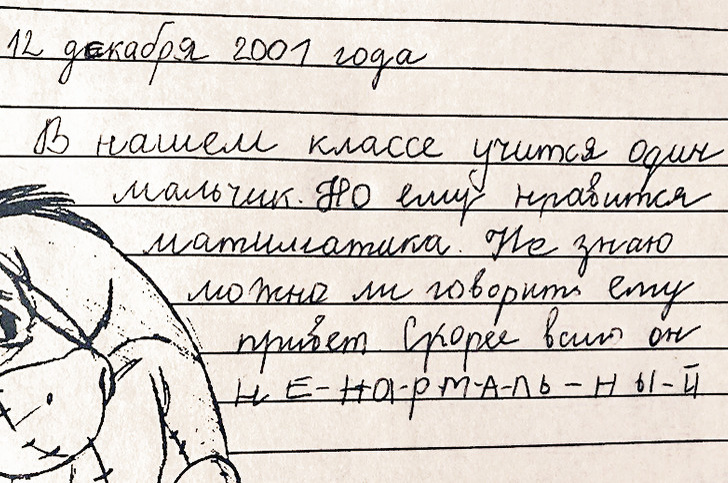 12 декабря 2001 года
В нашем классе учится один
мальчик. Но ему нравится
матиматика. Не знаю
можно ли говорить ему
привет Скорее всиго он
НЕ-НО-РМ-АЛЬ-НЫ-Й